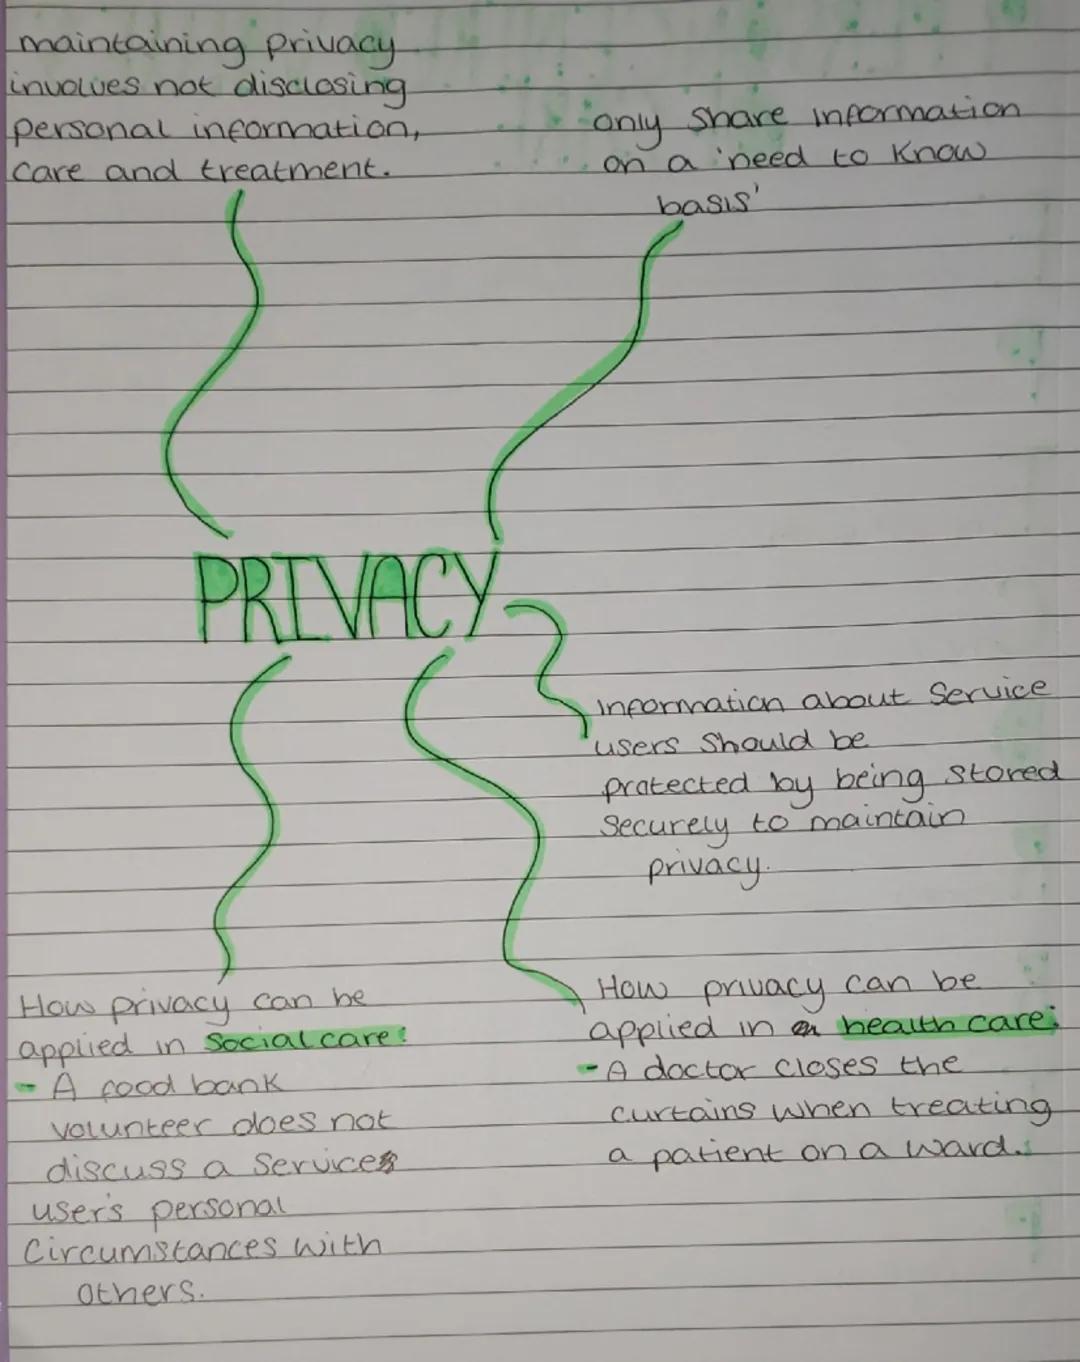 maintaining privacy
involves not disclosing
personal information,
care and treatment.
only share information
on a 'need to know
basis'
PRIVACY
Information about service
users should be
protected by being stored
securely to maintain
privacy.
How privacy can be
applied in social care:
- A food bank
volunteer does not
discuss a service
user's personal
circumstances with
others.
How privacy can be
applied in health care:
- A doctor closes the
curtains when treating
a patient on a ward.